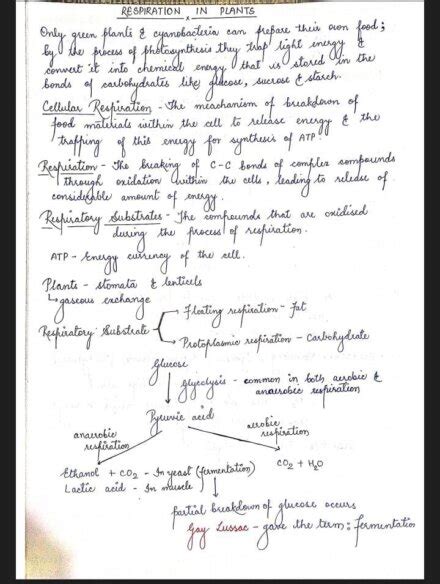 RESPIRATION IN PLANTS
Only green plants & cyanobacteria can prepare their own food;
by the process of photosynthesis they trap light energy &
convert it into chemical energy that is stored in the
bonds of carbohydrates like glucose, sucrose & starch.
Cellular Respiration - The meachanism of breakdown of
food materials within the cell to release energy & the
trapping of this energy for synthesis of ATP.
Respiration - The breaking of C-C bonds of complex compounds
through oxidation within the cells, leading to release of
considerable amount of energy.
Respiratory Substrates - The compounds that are oxidised
during the process of respiration.
ATP - Energy currency of the cell.
Plants - stomata & lenticels
gaseous exchange
Floating respiration - Fat
Respiratory Substrate
Protoplasmic respiration - Carbohydrate
Glucose
glycolysis - common in both aerobic &
anaerobic respiration
Pyruvic acid
anaerobic
respiration
aerobic
respiration
Ethanol + CO2 - In yeast (fermentation)
CO2 + H2O
Lactic acid - In muscle
partial breakdown of glucose occurs
Gay Lussac - gave the term: fermentation